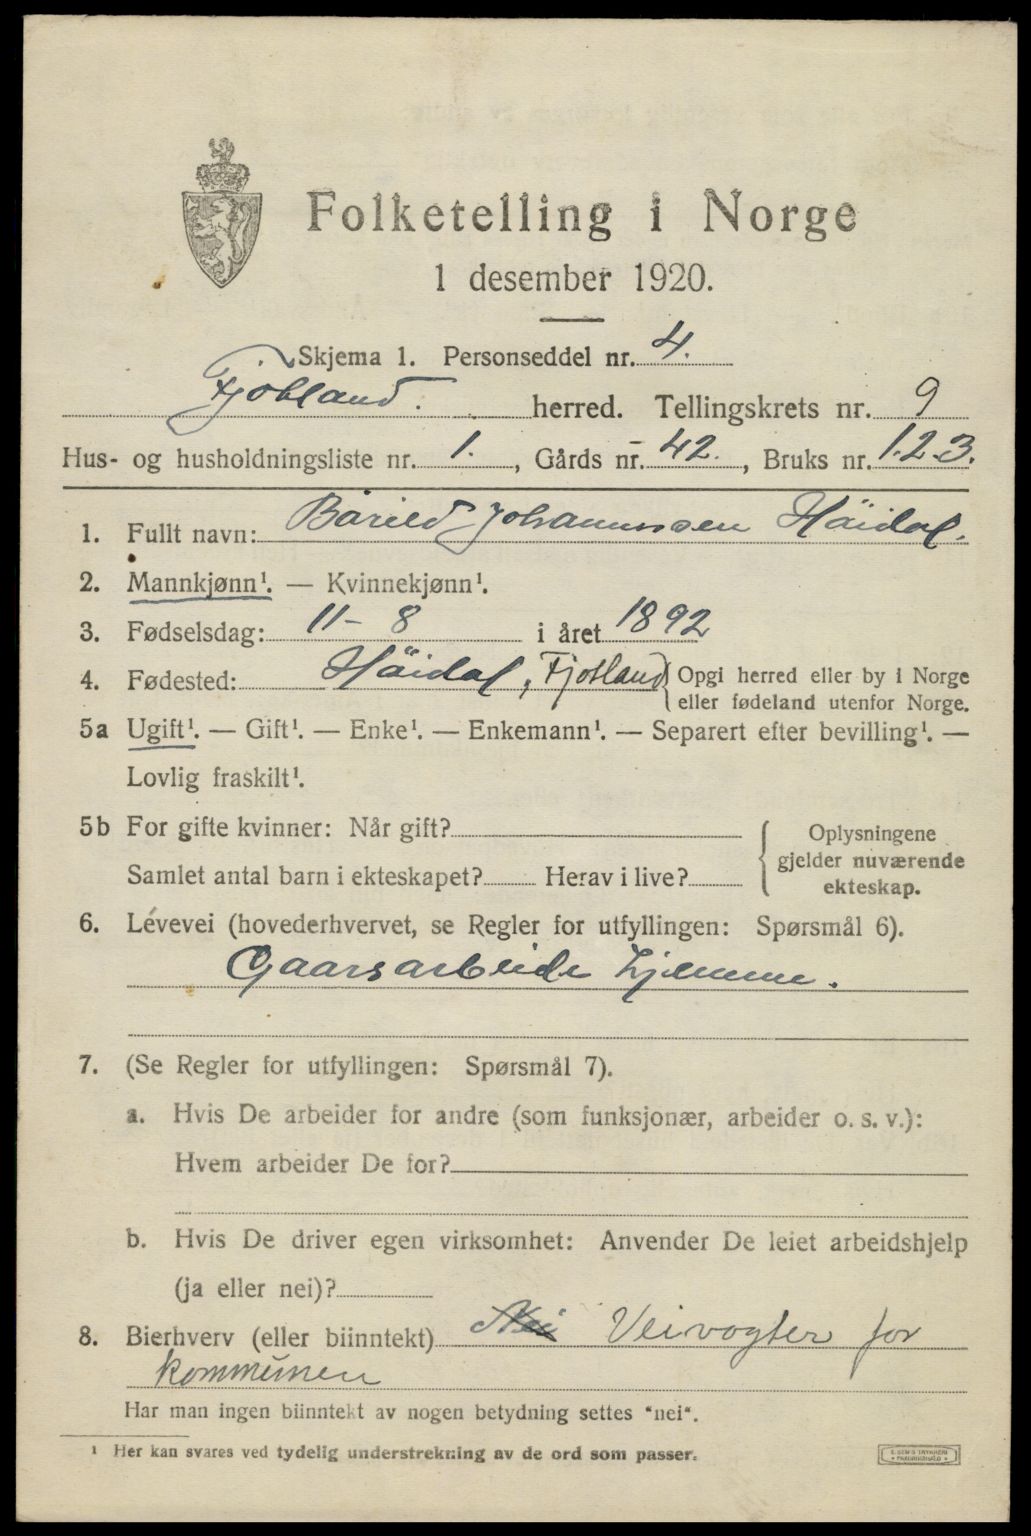 Folketelling i Norge
1 desember 1920.
Skjema 1. Personseddel nr. 4.
Fjotland. herred. Tellingskrets nr. 9
Hus- og husholdningsliste nr. 1. , Gårds nr. 42. , Bruks nr. 1.2.3.
1. Fullt navn: Johannessen Häidal.
2. Mannkjønn¹. — Kvinnekjønn¹.
3. Fødselsdag: 11 - 8 i året 1892
4. Fødested: Häidal, Fjotland { Opgi herred eller by i Norge
eller fødeland utenfor Norge.
5a Ugift¹. — Gift¹. — Enke¹. — Enkemann¹. — Separert efter bevilling¹. —
Lovlig fraskilt¹.
5b For gifte kvinner: Når gift?
Samlet antal barn i ekteskapet? Herav i live?
{ Oplysningene
gjelder nuværende
ekteskap.
6. Lévevei (hovederhvervet, se Regler for utfyllingen: Spørsmål 6).
Gaarsarbeide hjemme.
7. (Se Regler for utfyllingen: Spørsmål 7).
a. Hvis De arbeider for andre (som funksjonær, arbeider o. s. v.):
Hvem arbeider De for?
b. Hvis De driver egen virksomhet: Anvender De leiet arbeidshjelp
(ja eller nei)?
8. Bierhverv (eller biinntekt) Nei Veivogter for
kommunen
Har man ingen biinntekt av nogen betydning settes "nei".
¹ Her kan svares ved tydelig understrekning av de ord som passer.